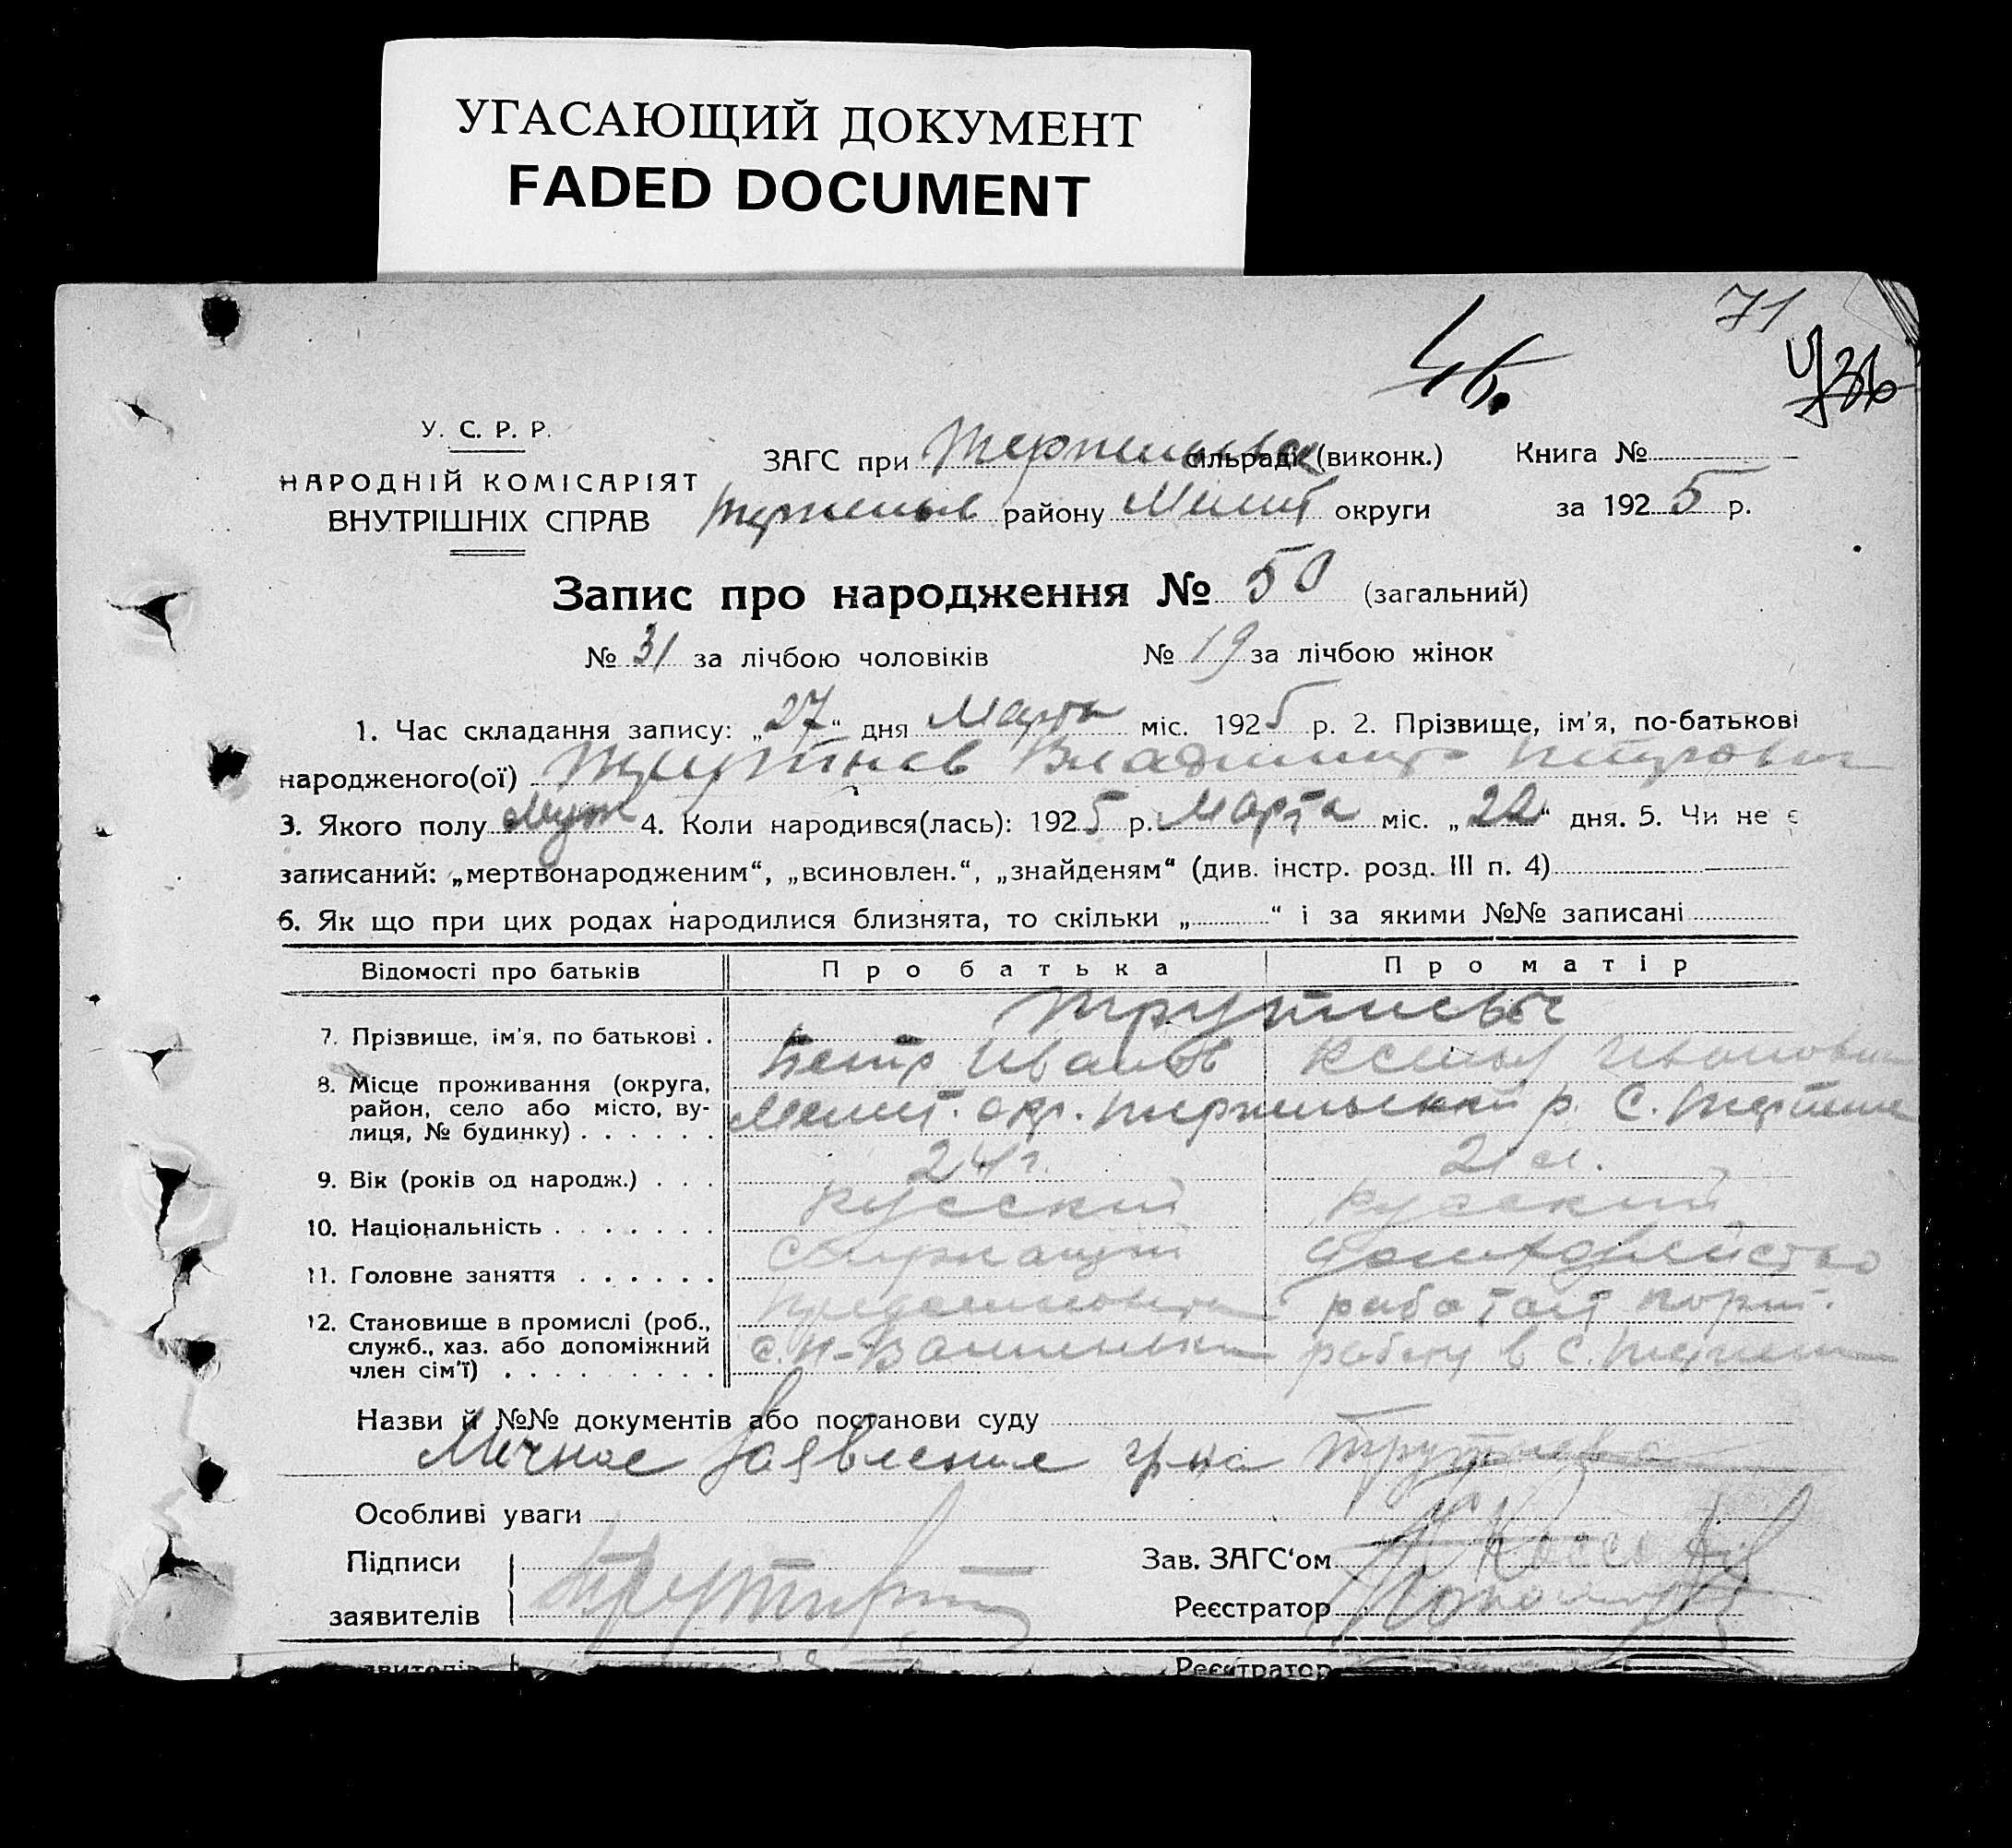 УГАСАЮЩИЙ ДОКУМЕНТ
FADED DOCUMENT
71
46.
У. С. Р. Р.
НАРОДНІЙ КОМІСАРІЯТ
ВНУТРІШНІХ СПРАВ
ЗАГС при сільраді (виконк.) Книга №
району Мелит округи за 1925 р.
Запис про народження № 50 (загальний)
№ 31 за лічбою чоловіків № 19 за лічбою жінок
1. Час складання запису: „27“ дня Марта міс. 1925 р. 2. Прізвище, ім'я, по-батькові
народженого(ої) Трутнев Владимир Петрович
3. Якого полу Муж 4. Коли народився(лась): 1925 р. Марта міс. „22“ дня. 5. Чи не є
записаний: „мертвонародженим“, „всиновлен.“, „знайденям“ (див. інстр. розд. III п. 4)
6. Як що при цих родах народилися близнята, то скільки „ “ і за якими №№ записані
Відомості про батьків Про батька Про матір
Трутневы
7. Прізвище, ім'я, по батькові . Петр Иванов Ксенья Ивановна
8. Місце проживання (округа, район, село або місто, вулиця, № будинку) Мелит. окр. р. с.
9. Вік (років од народж.) . . . 24 г. 21 л.
10. Національність . . . . . . . русский русский
11. Головне заняття . . . . . . домохозяйство
12. Становище в промислі (роб., служб., хаз. або допоміжний член сім'ї) работает порт.
работу в с.
Назви й №№ документів або постанови суду
Личное заявление гр-на Трутнева
Особливі уваги
Підписи
заявителів
Зав. ЗАГС'ом
Реєстратор
Реєстратор